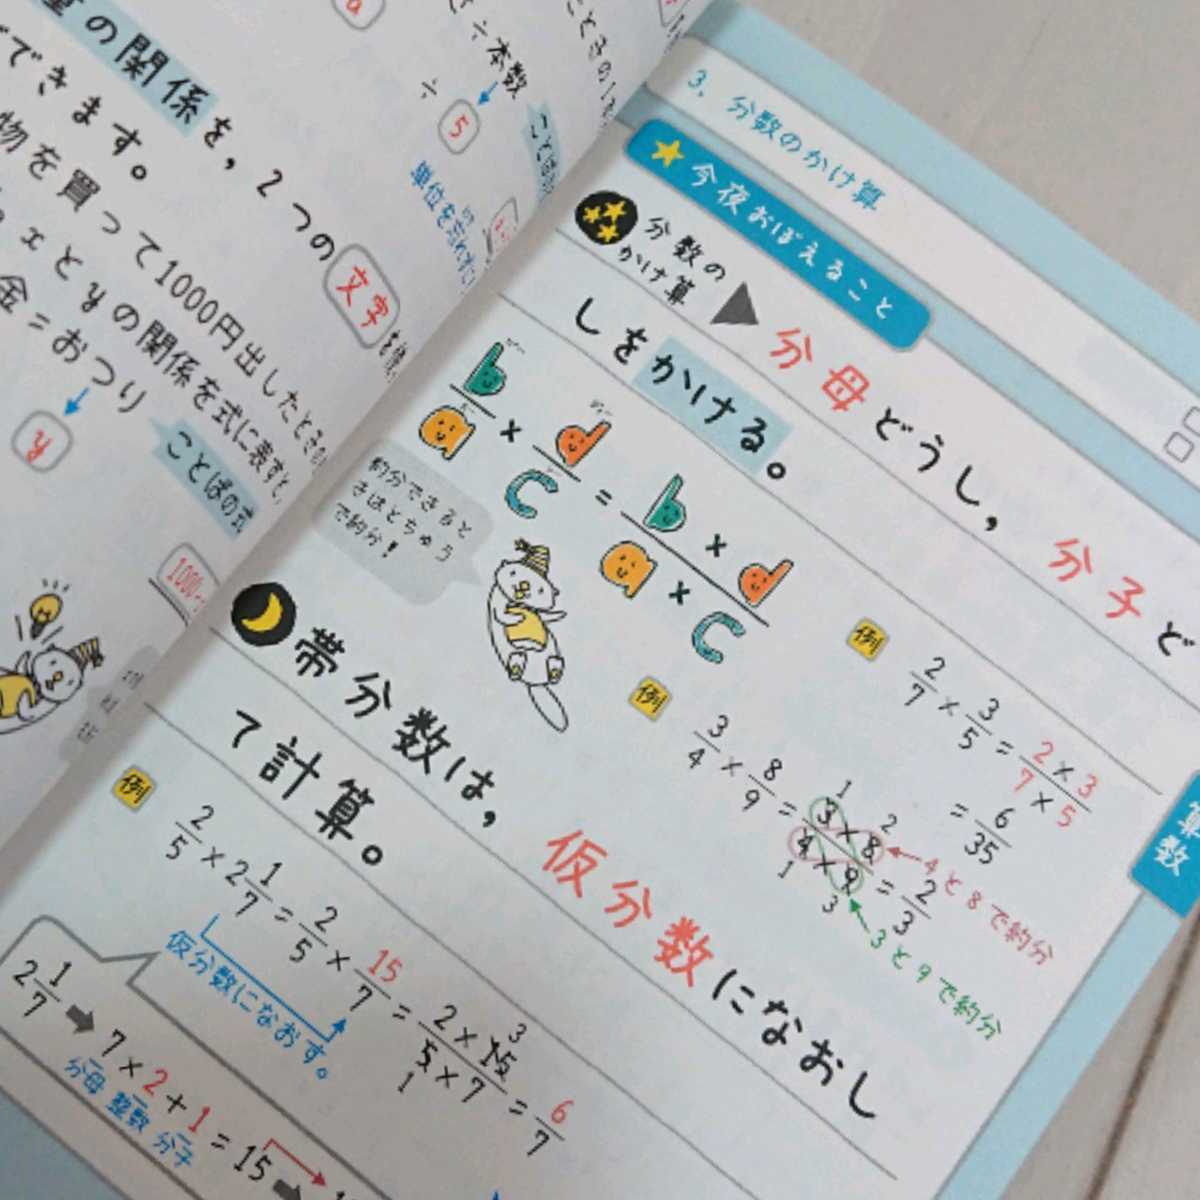 量の関係を，2つの文字を
できます。
物を買って1000円出したときの
xとyの関係を式に表すと，
金＝おつり
y
ことばの式
÷本数
÷
5
3．分数のかけ算
★今夜おぼえること
分数の
かけ算
▶分母どうし，分子ど
しをかける。
b/a × d/c = b×d/a×c
約分できると
きはとちゅう
で約分！
例
2/7 × 3/5 = 2×3/7×5
= 6/35
例
3/4 × 8/9 = 3×8/4×9 = 2/3
1 2
1 3
4と8で約分
3と9で約分
帯分数は，仮分数になおし
て計算。
例
2/5 × 2 1/7 = 2/5 × 15/7 = 2×15/5×7 = 6/7
3
1
仮分数になおす。
2 1/7 ➡ 7×2+1＝15➡
分母 整数 分子
算数